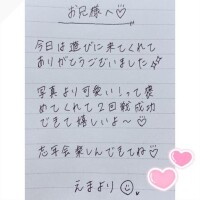 お兄様へ♡
今日は遊びに来てくれて
ありがとうございました☆
写真より可愛い！って褒
めてくれて2回戦成功
できて嬉しいよ〜♡
忘年会楽しんできてね♡
えまより